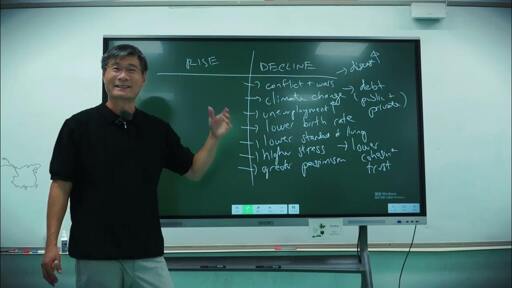 RISE
DECLINE
conflict + wars
climate change
unemployment
lower birth rate
lower standard of living
higher stress → lower
cohesion
greater pessimism
trust
debt
(public +
private)
Windows